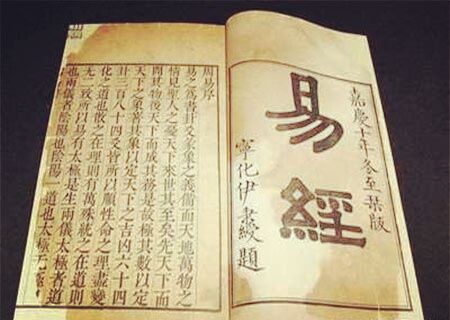 嘉慶十年冬至栞版
易經
寧化伊秉綬題
周易序
易之爲書卦爻彖象之義備而天地萬物之
情見聖人之憂天下來世其至矣先天下而
開其物後天下而成其務是故極其數以定
天下之象著其象以定天下之吉凶六十四
卦三百八十四爻皆所以順性命之理盡變
化之道也散之在理則有萬殊統之在道則
无二致所以易有太極是生兩儀太極者道
也兩儀者陰陽也陰陽一道也太極无極也